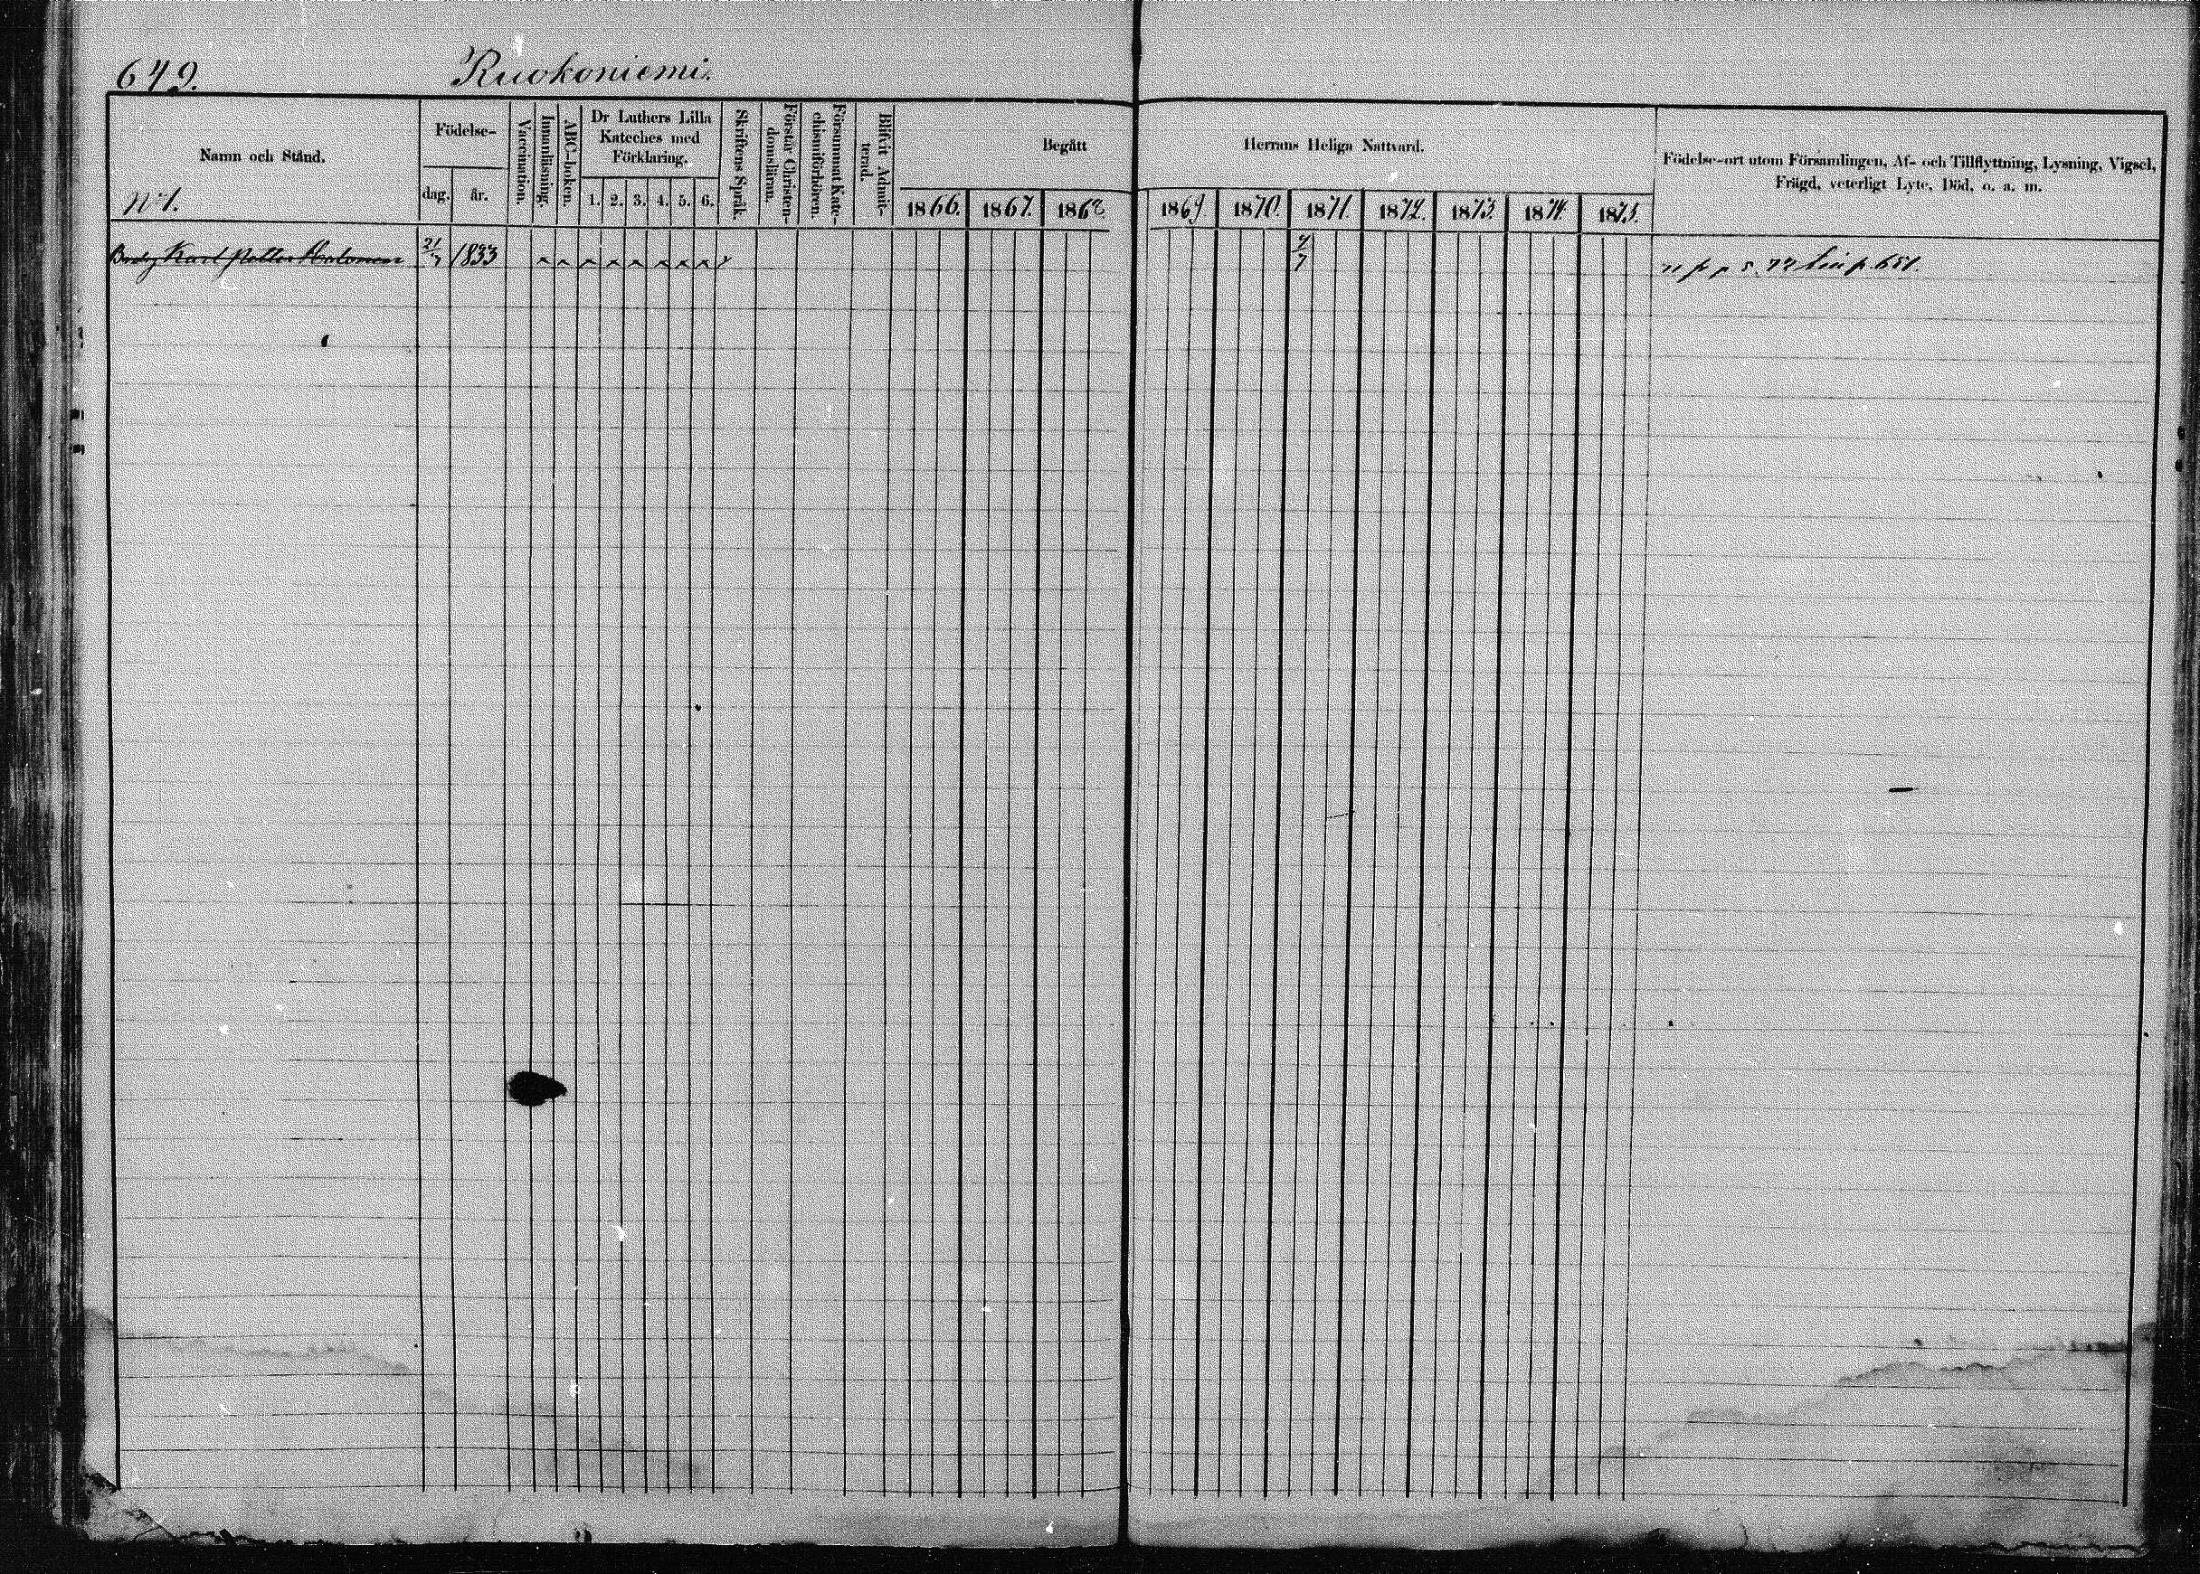 649.
Ruokoniemi.
Namn och Stånd.
Nº1.
Födelse-
dag.
år.
Vaccination.
Innanläsning.
ABC-boken.
Dr Luthers Lilla
Kateches med
Förklaring.
1. 2. 3. 4. 5. 6.
Skriftens Språk.
Förstår Christen-
domsläran.
Försummat Kate-
chismiförhören.
Blifvit Admit-
terad.
Begått
Herrans Heliga Nattvard.
1866. 1867. 1868 1869. 1870. 1871. 1872. 1873. 1874. 1875.
Födelse-ort utom Församlingen, Af- och Tillflyttning, Lysning, Vigsel,
Frägd, veterligt Lyte, Död, o. a. m.
Karl Halonen 21/7 1833
4/7
p. 651.